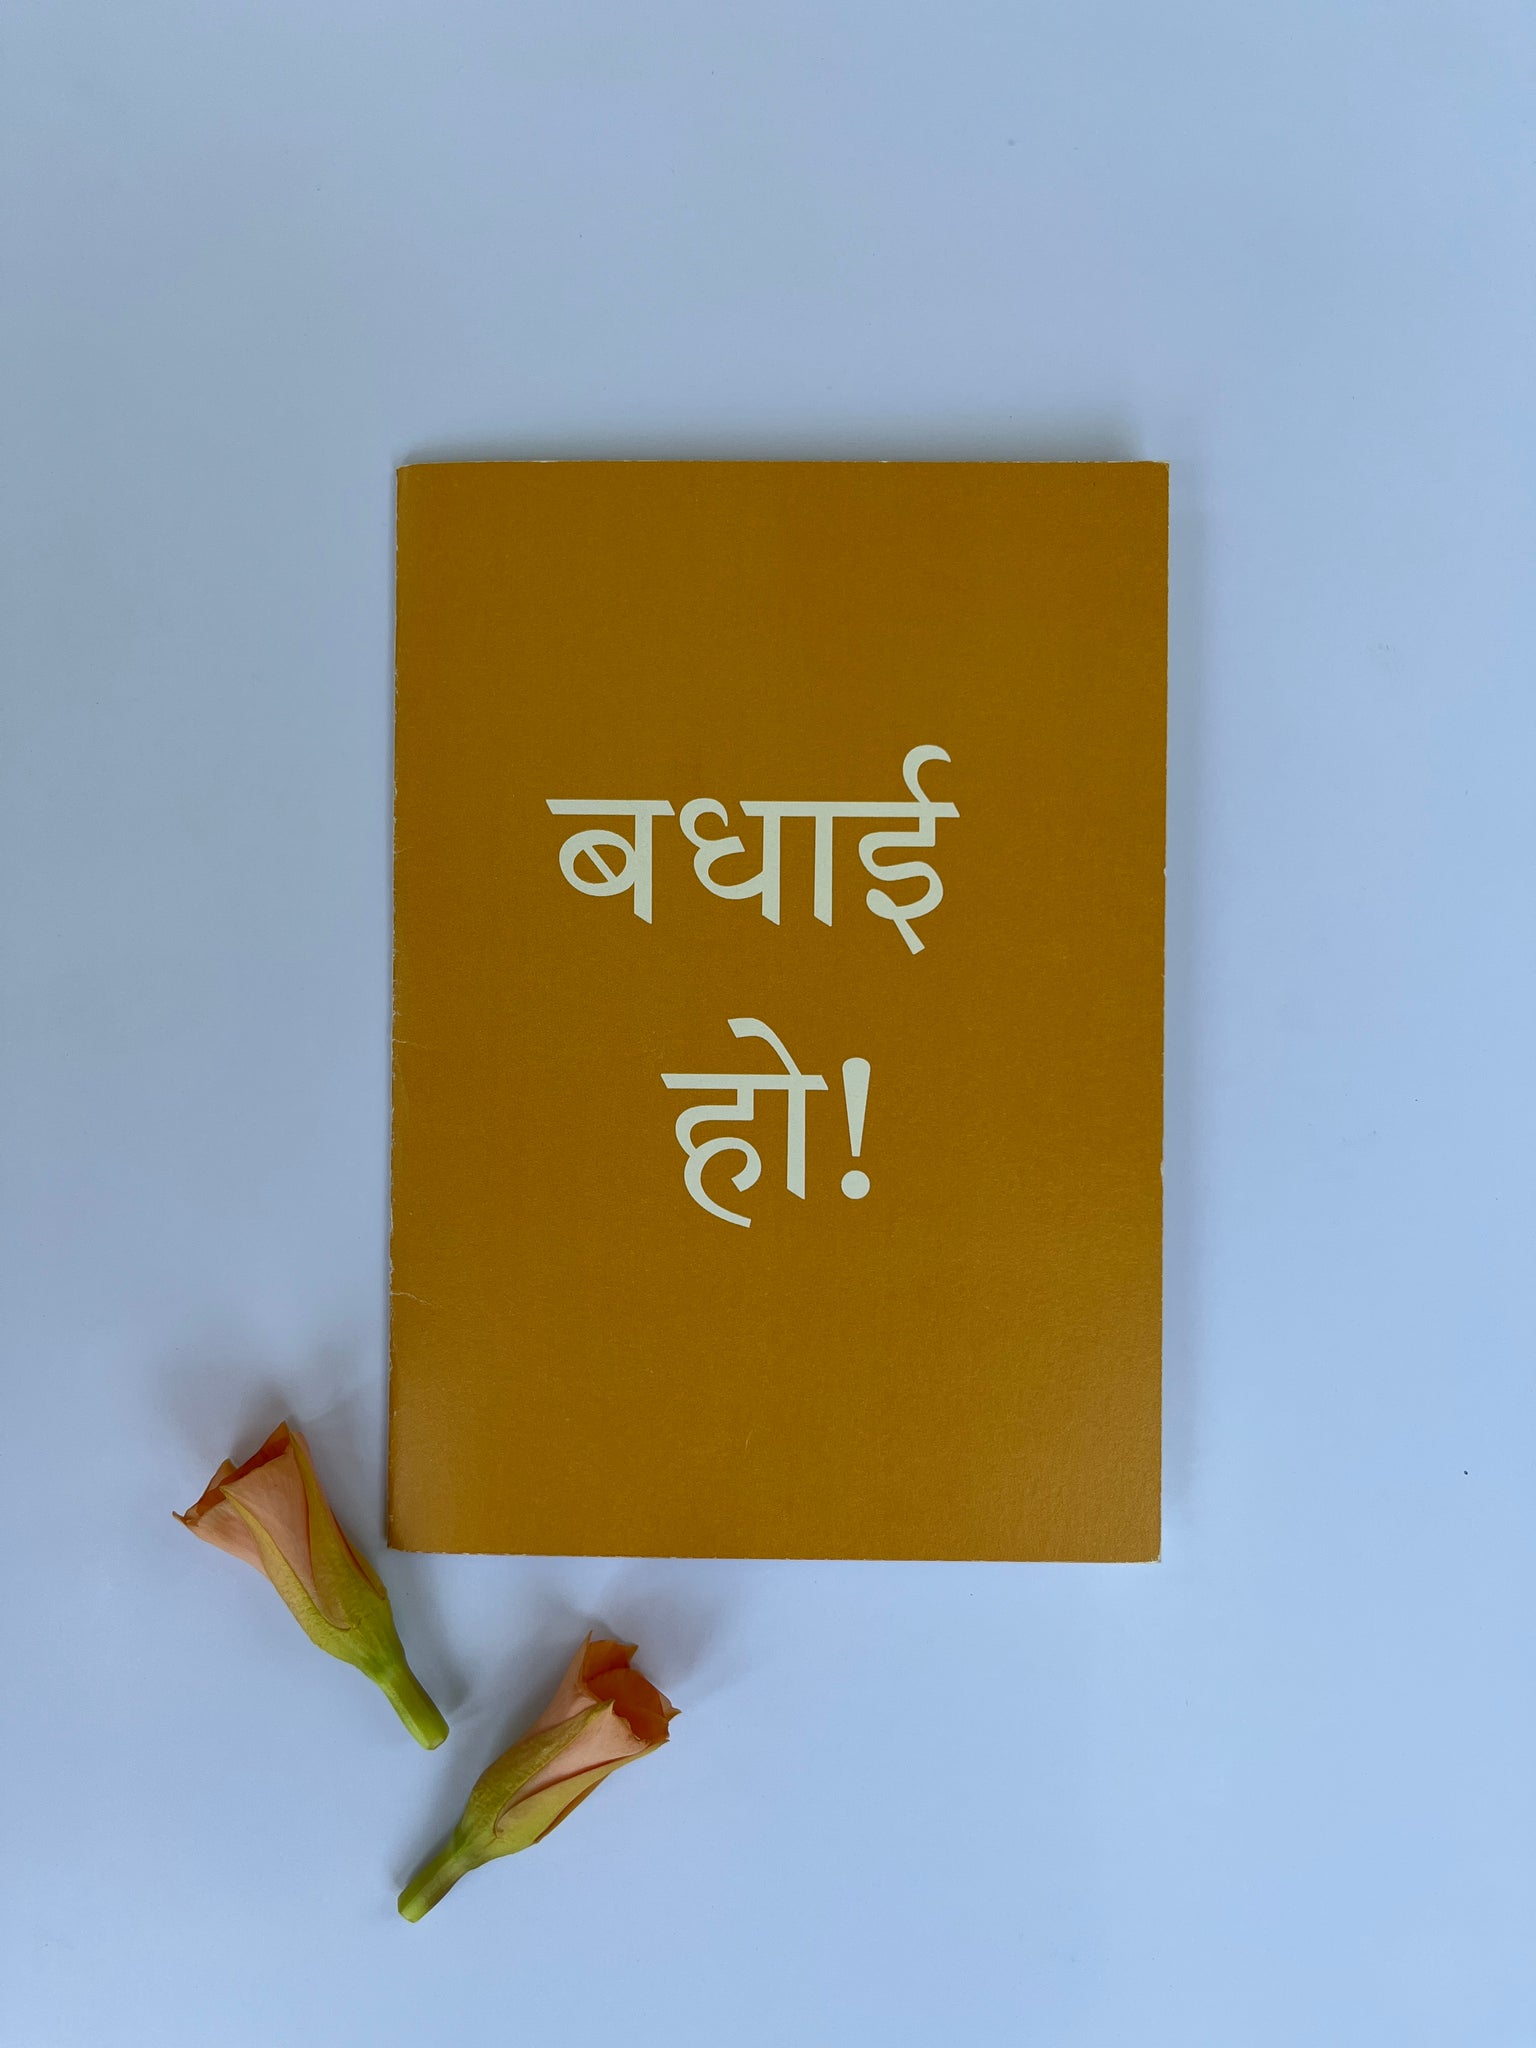 बधाई
हो!